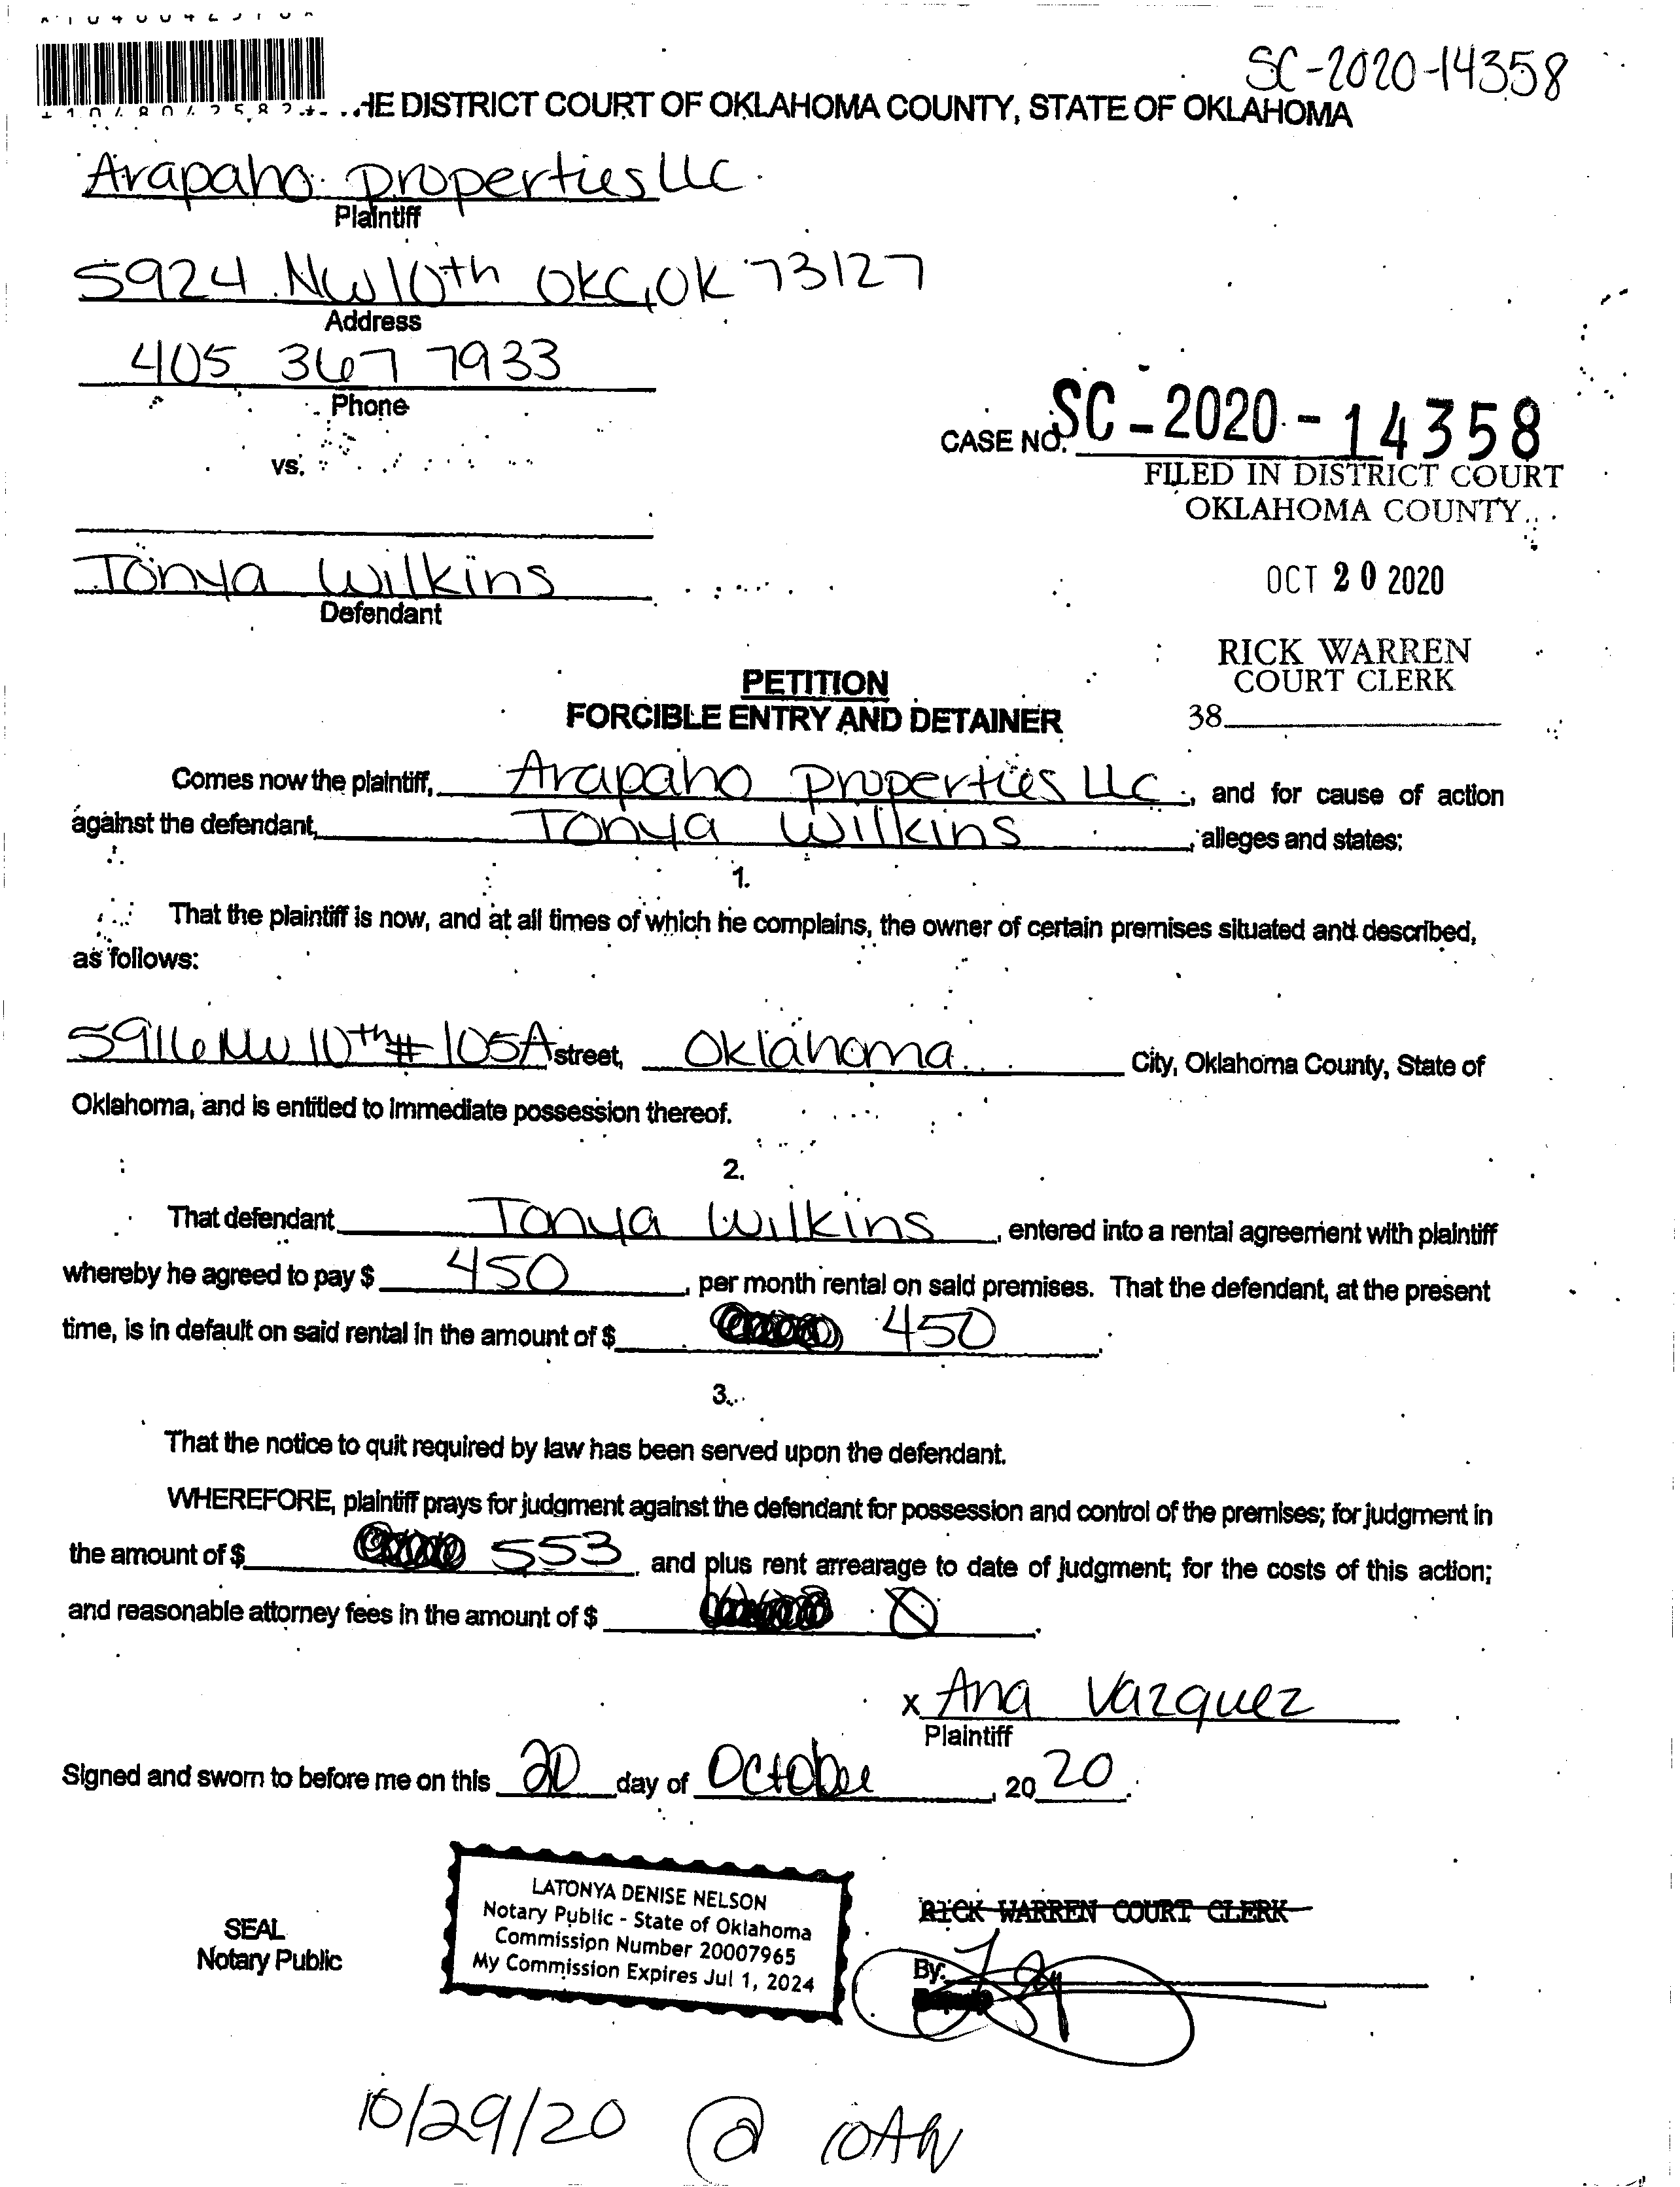 SC-2020-14358
HE DISTRICT COURT OF OKLAHOMA COUNTY, STATE OF OKLAHOMA
Arapaho properties LLC
Plaintiff
5924 NW 10th OKC, OK 73127
Address
405 367 7933
Phone
CASE NO. SC-2020-14358
vs.
FILED IN DISTRICT COURT
OKLAHOMA COUNTY
Tonya Wilkins
OCT 20 2020
Defendant
RICK WARREN
COURT CLERK
PETITION
FORCIBLE ENTRY AND DETAINER
38
Comes now the plaintiff, Arapaho properties LLC, and for cause of action
against the defendant, Tonya Wilkins, alleges and states:
1.
That the plaintiff is now, and at all times of which he complains, the owner of certain premises situated and described,
as follows:
5916 NW 10th # 105A street, Oklahoma City, Oklahoma County, State of
Oklahoma, and is entitled to immediate possession thereof.
2.
That defendant Tonya Wilkins, entered into a rental agreement with plaintiff
whereby he agreed to pay $ 450, per month rental on said premises. That the defendant, at the present
time, is in default on said rental in the amount of $ 450.
3.
That the notice to quit required by law has been served upon the defendant.
WHEREFORE, plaintiff prays for judgment against the defendant for possession and control of the premises; for judgment in
the amount of $ 553, and plus rent arrearage to date of judgment; for the costs of this action;
and reasonable attorney fees in the amount of $ 0.
x Ana Vazquez
Plaintiff
Signed and sworn to before me on this 20 day of October, 2020.
LATONYA DENISE NELSON
Notary Public - State of Oklahoma
Commission Number 20007965
My Commission Expires Jul 1, 2024
SEAL
Notary Public
RICK WARREN COURT CLERK
By:
10/29/20 @ 10AM